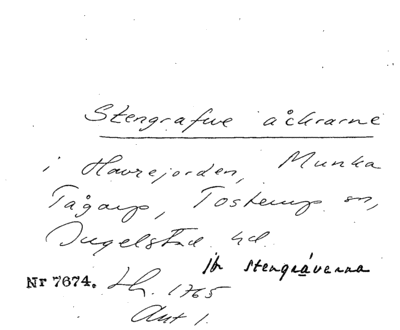 Stengrafwe åckrarne
i Havrejorden, Munka
Tågarp, Tosterup sn,
Ingelstad hd.
stengrávarna
Nr 7674. Lh. 1765
Akt 1.